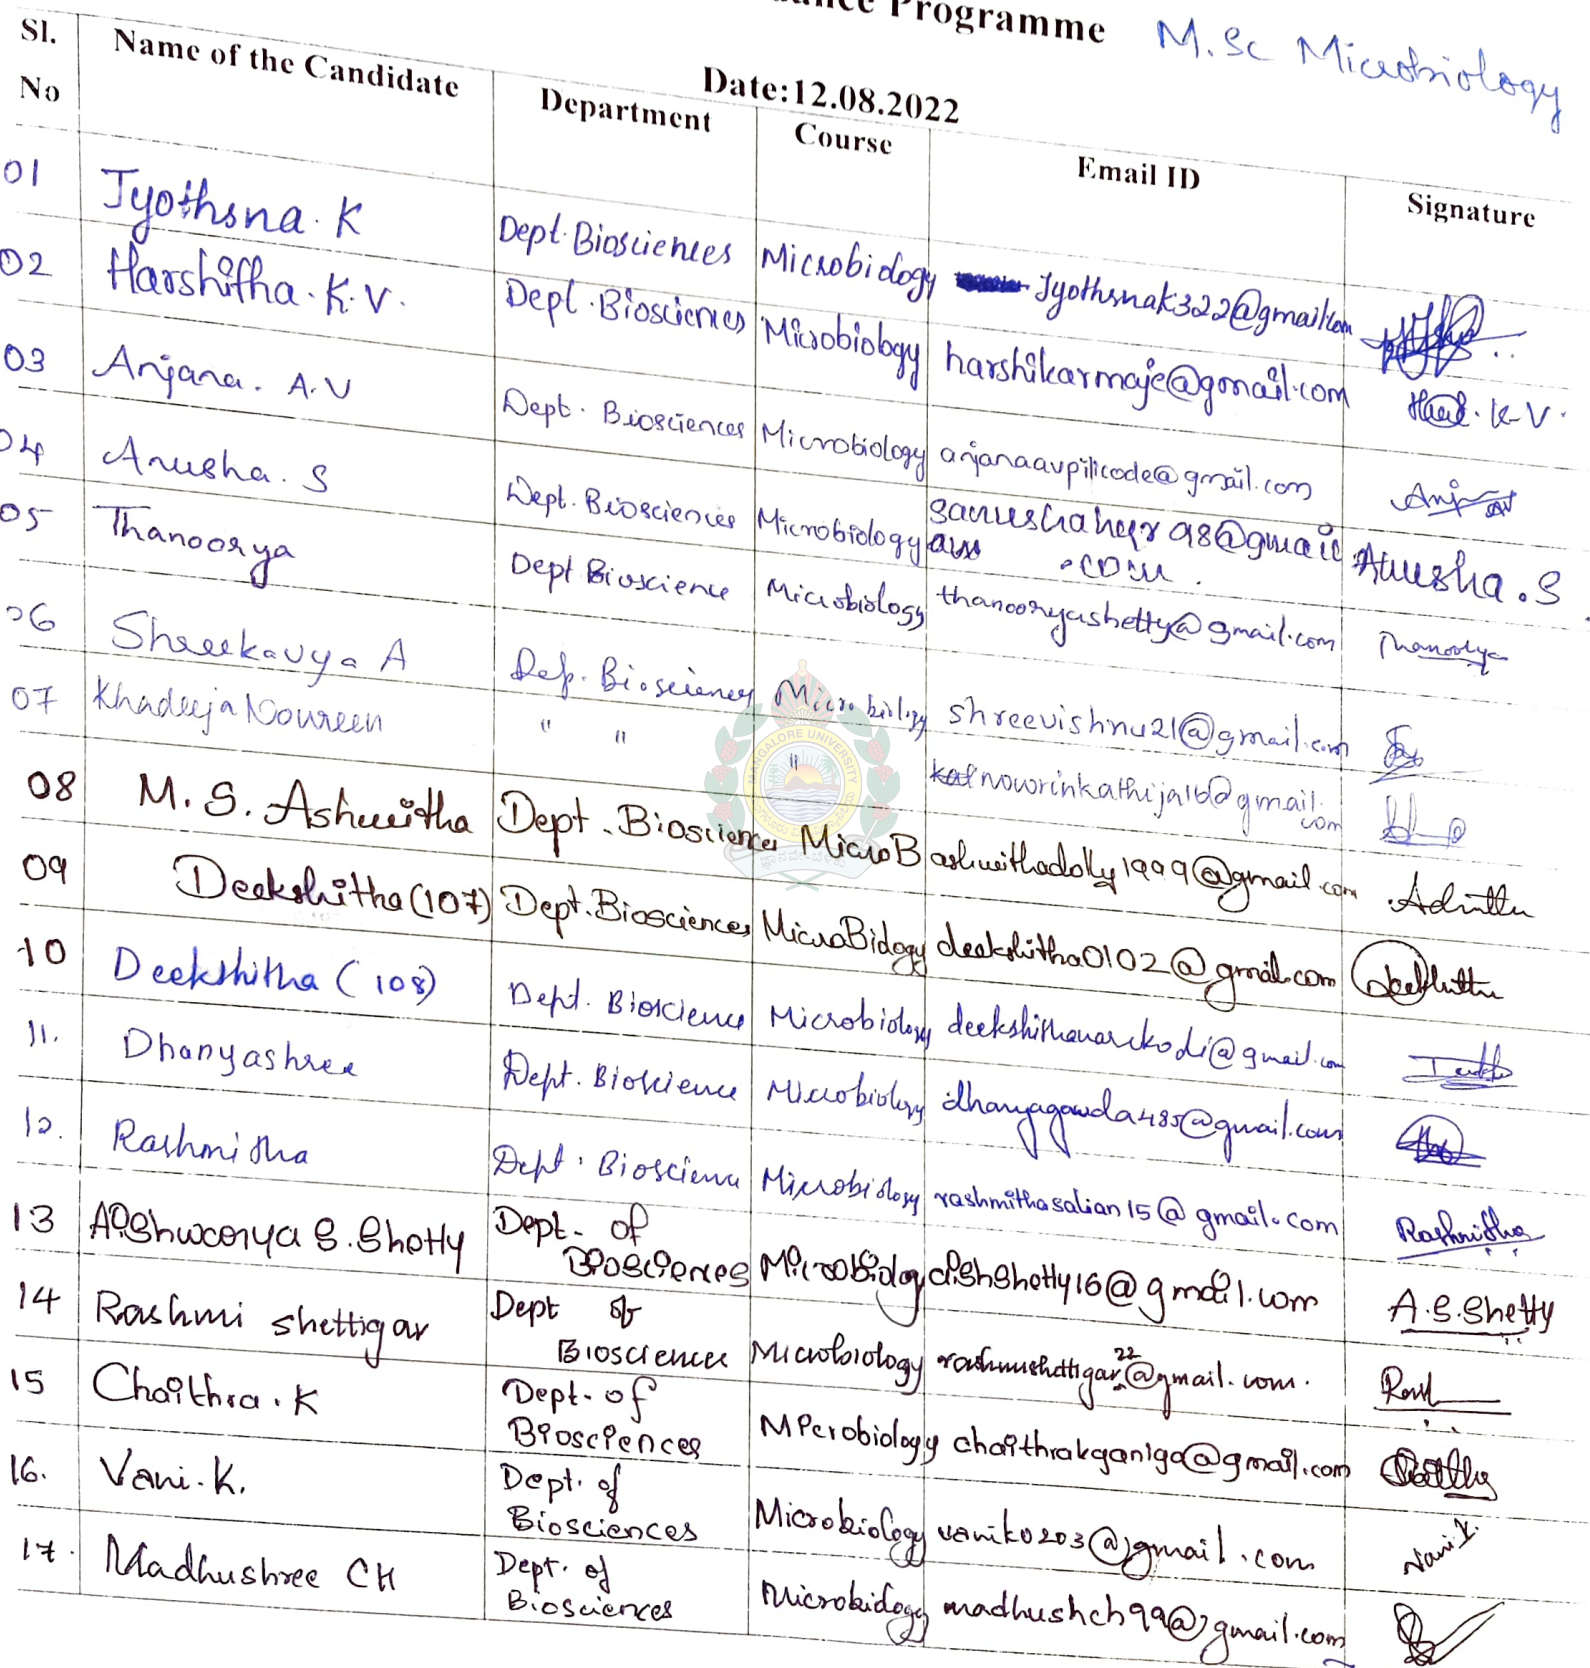 Programme M.Sc Microbiology
Date:12.08.2022
Sl. No Name of the Candidate Department Course Email ID Signature
01 Jyothsna. K Dept. Biosciences Microbiology Jyothsnak322@gmail.com
02 Harshitha. K. V. Dept. Biosciences Microbiology harshikarmaje@gmail.com K.V.
03 Anjana. A. V Dept. Biosciences Microbiology anjanaavpilicode@gmail.com
04 Anusha. S Dept. Biosciences Microbiology @gmail.com Anusha. S
05 Thanoorya Dept Bioscience Microbiology thanooryashetty@gmail.com Thanoorya
06 Shreekavya A Dep. Biosciences Microbiology shreevishnu21@gmail.com
07 Khadeeja Noureen " " " nowrinkathija16@gmail.com
08 M. S. Ashwitha Dept. Biosciences MicroB ashwithadolly1999@gmail.com
09 Deekshitha (107) Dept. Biosciences MicroBiology deekshitha0102@gmail.com
10 Deekshitha (108) Dept. Bioscience Microbiology @gmail.com
11. Dhanyashree Dept. Bioscience Microbiology dhanyagowda485@gmail.com
12. Rashmitha Dept. Bioscience Microbiology rashmithasalian15@gmail.com Rashmitha
13 Aishwarya S. Shetty Dept. of Biosciences Microbiology aishshetty16@gmail.com A.S.Shetty
14 Rashmi shettigar Dept of Biosciences Microbiology rashmishettigar22@gmail.com.
15 Chaithra. K Dept. of Biosciences Microbiology chaithrakganiga@gmail.com
16. Vani. K. Dept. of Biosciences Microbiology vanik0203@gmail.com Vani K.
17. Madhushree CH Dept. of Biosciences Microbiology madhushch99@gmail.com
MANGALORE UNIVERSITY